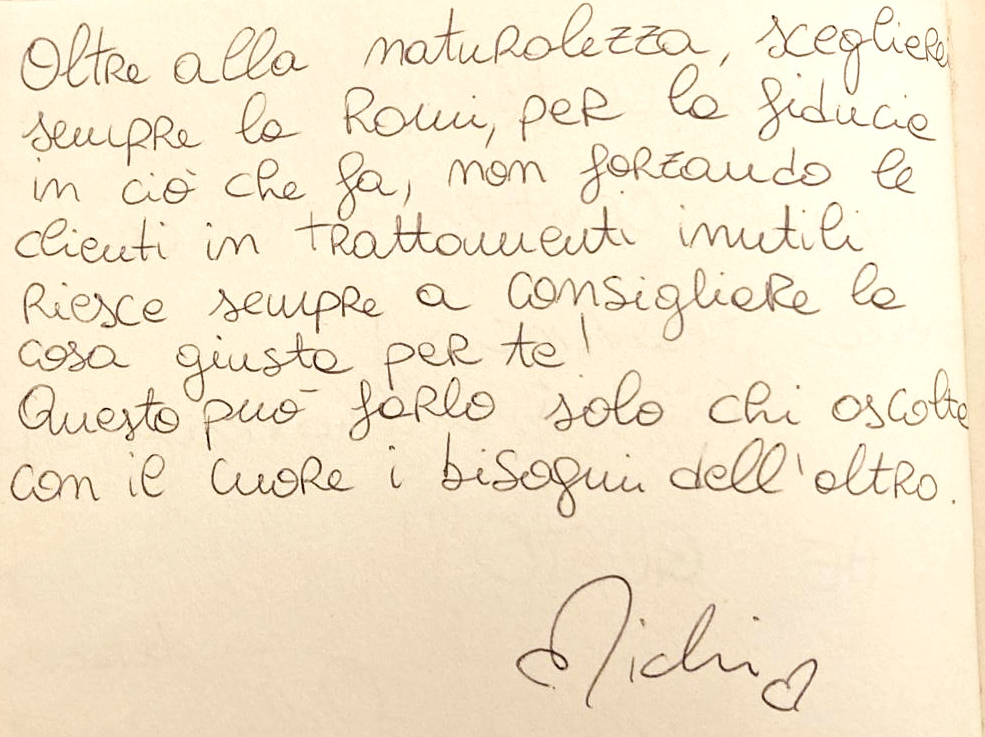 Oltre alla naturalezza, scegliere
sempre la Romi, per la fiducia
in ciò che fa, non forzando le
clienti in trattamenti inutili
Riesce sempre a consigliare la
cosa giusta per te!
Questo può farlo solo chi ascolta
con il cuore i bisogni dell'altro.